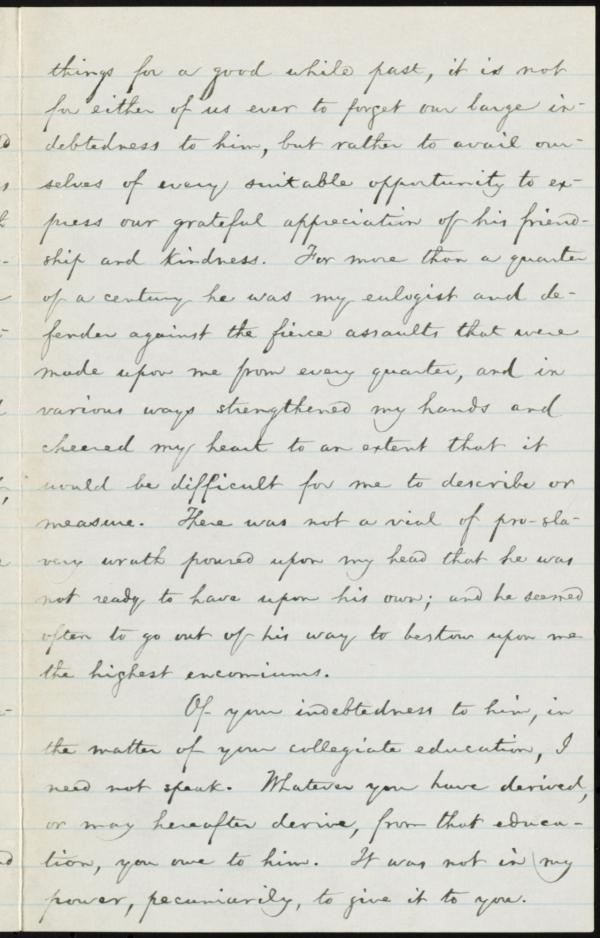 things for a good while past, it is not
for either of us ever to forget our large in-
debtedness to him, but rather to avail our-
selves of every suitable opportunity to ex-
press our grateful appreciation of his friend-
ship and kindness. For more than a quarter
of a century he was my eulogist and de-
fender against the fierce assaults that were
made upon me from every quarter, and in
various ways strengthened my hands and
cheered my heart to an extent that it
would be difficult for me to describe or
measure. There was not a vial of pro-sla-
very wrath poured upon my head that he was
not ready to have upon his own; and he seemed
often to go out of his way to bestow upon me
the highest encomiums.
Of your indebtedness to him, in
the matter of your collegiate education, I
need not speak. Whatever you have derived,
or may hereafter derive, from that educa-
tion, you owe to him. It was not in my
power, pecuniarily, to give it to you.